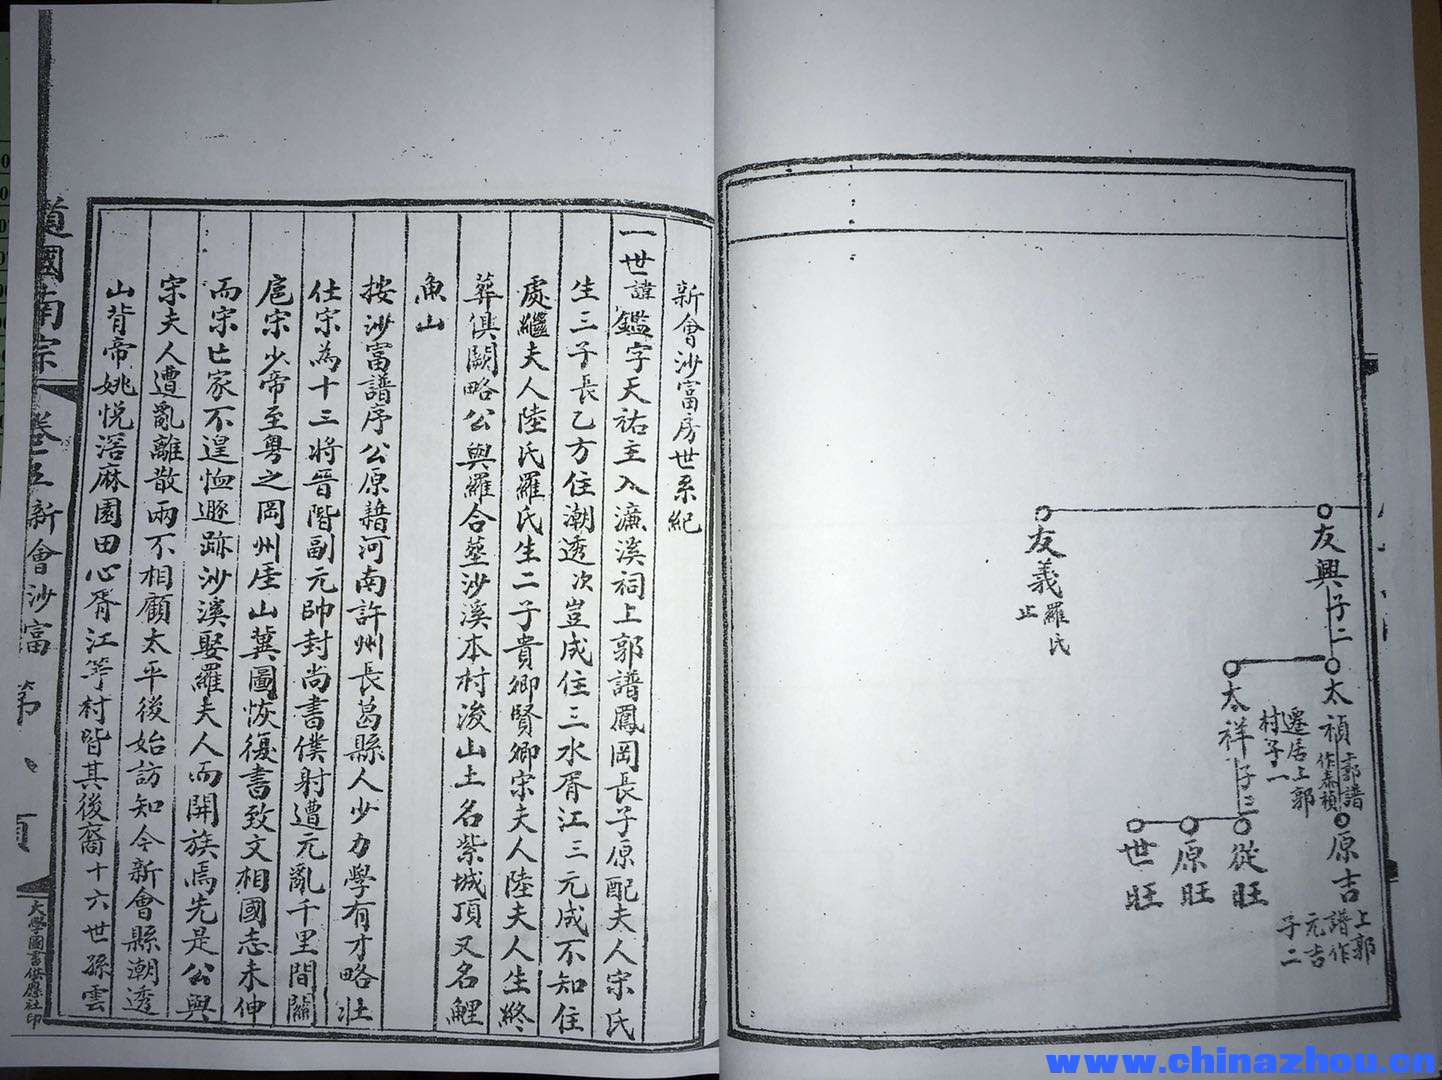 友興子二
友義羅氏
止
太禎上郭譜
作泰禎
遷居上郭
村子一
太祥子三
原吉上郭
譜作
元吉
子二
從旺
原旺
世旺
新會沙富房世系紀
一世諱鑑字天祐主入濂溪祠上郭譜鳳岡長子原配夫人宋氏
生三子長乙方住潮透次豈成住三水胥江三元成不知住
處繼夫人陸氏羅氏生二子貴卿賢卿宋夫人陸夫人生終
葬俱闕略公與羅合塋沙溪本村浚山土名紫城頂又名鯉
魚山
按沙富譜序公原籍河南許州長葛縣人少力學有才略壯
仕宗為十三將晉階副元帥封尚書僕射遭元亂千里間關
扈宋少帝至粵之岡州厓山冀圖恢復書致文相國志未伸
而宗亡家不遑恤遯跡沙溪娶羅夫人而開族焉先是公與
宗夫人遭亂離散兩不相顧太平後始訪知今新會縣潮透
山背帝姚悅滘麻園田心胥江等村皆其後裔十六世孫雲
道國南宗
卷五新會沙富
第 頁
大學圖書供應社印
www.chinazhou.cn